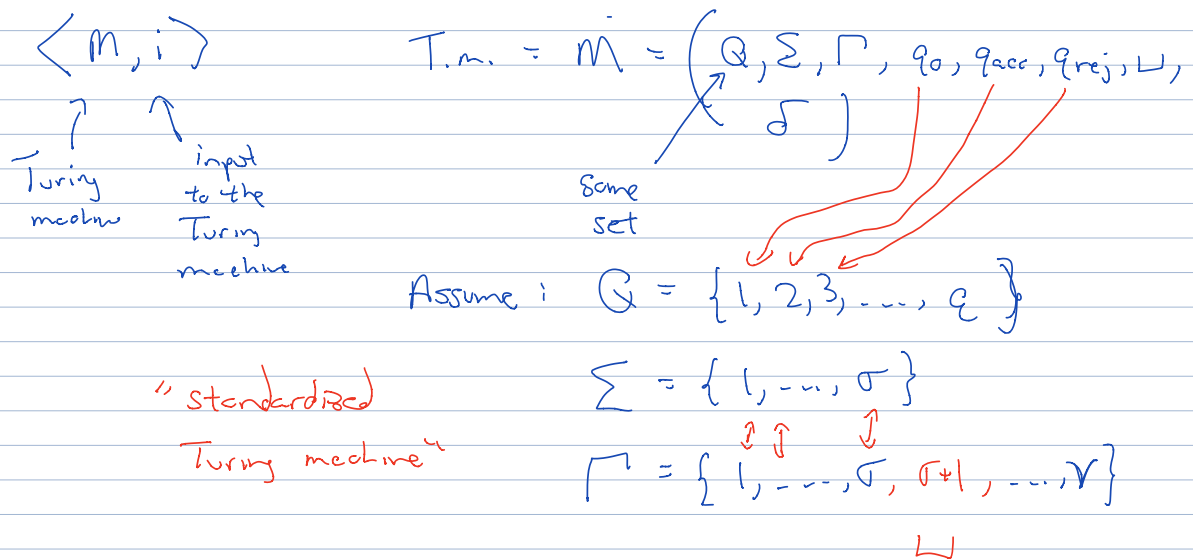 ⟨M, i⟩
Turing
machine
input
to the
Turing
machine
T.m. = M = (Q, Σ, Γ, q0, qacc, qrej, ⊔,
δ)
Some
set
Assume: Q = {1, 2, 3, ..., q}
Σ = {1, ..., σ}
"standardized
Turing machine"
Γ = {1, ...., σ, σ+1, ..., γ}
⊔